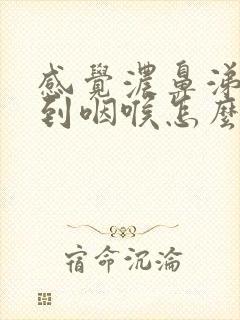 感覺濃鼻涕
到咽喉怎麼
宿命沉淪